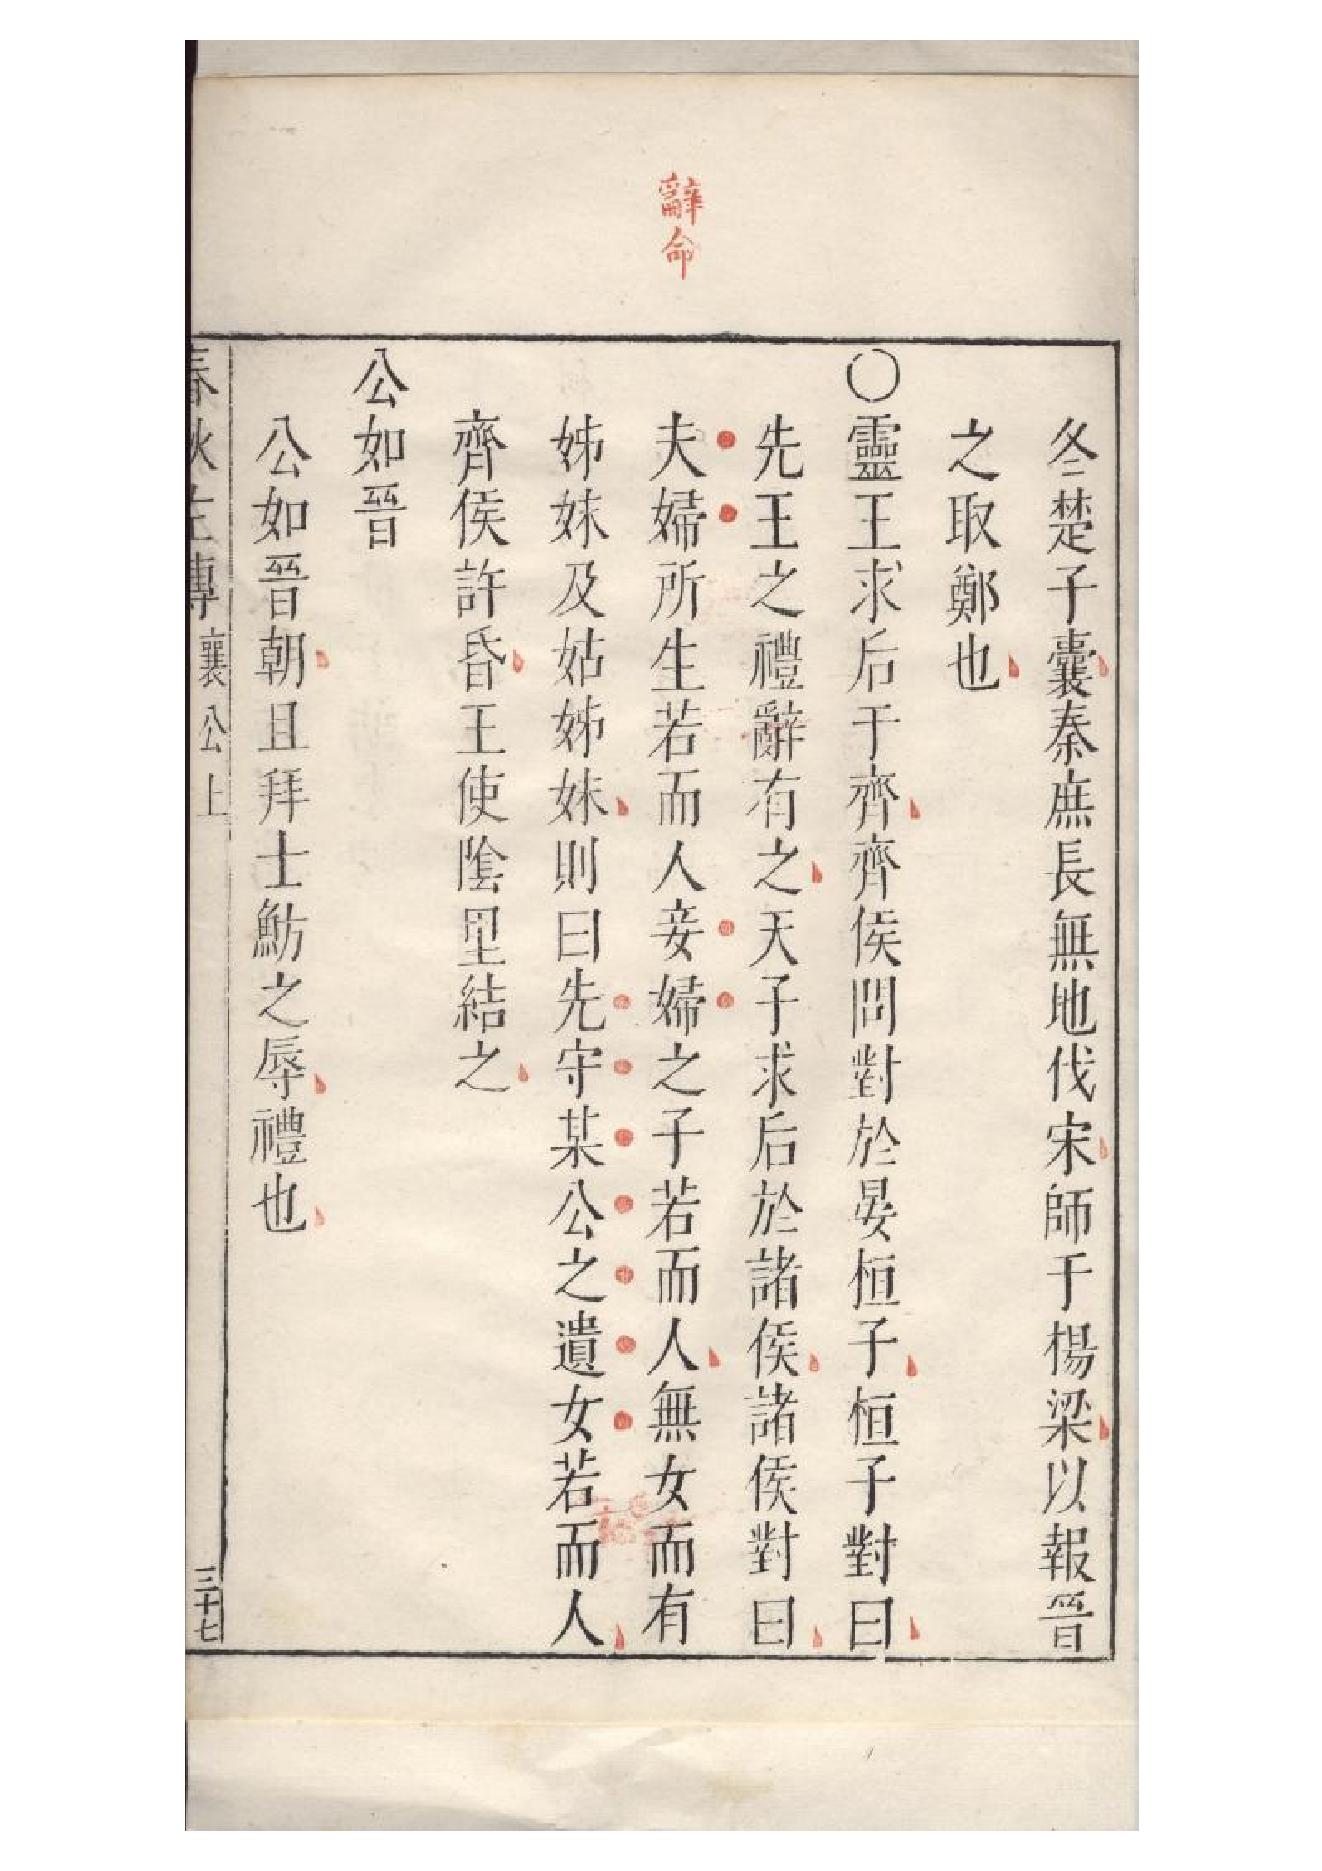 辭命
冬楚子囊秦庶長無地伐宋師于楊梁以報晉
之取鄭也
〇靈王求后于齊齊侯問對於晏桓子桓子對曰
先王之禮辭有之天子求后於諸侯諸侯對曰
夫婦所生若而人妾婦之子若而人無女而有
姊妹及姑姊妹則曰先守某公之遺女若而人
齊侯許昏王使陰里結之
公如晉
公如晉朝且拜士魴之辱禮也
春秋左傳 襄公上 三十七